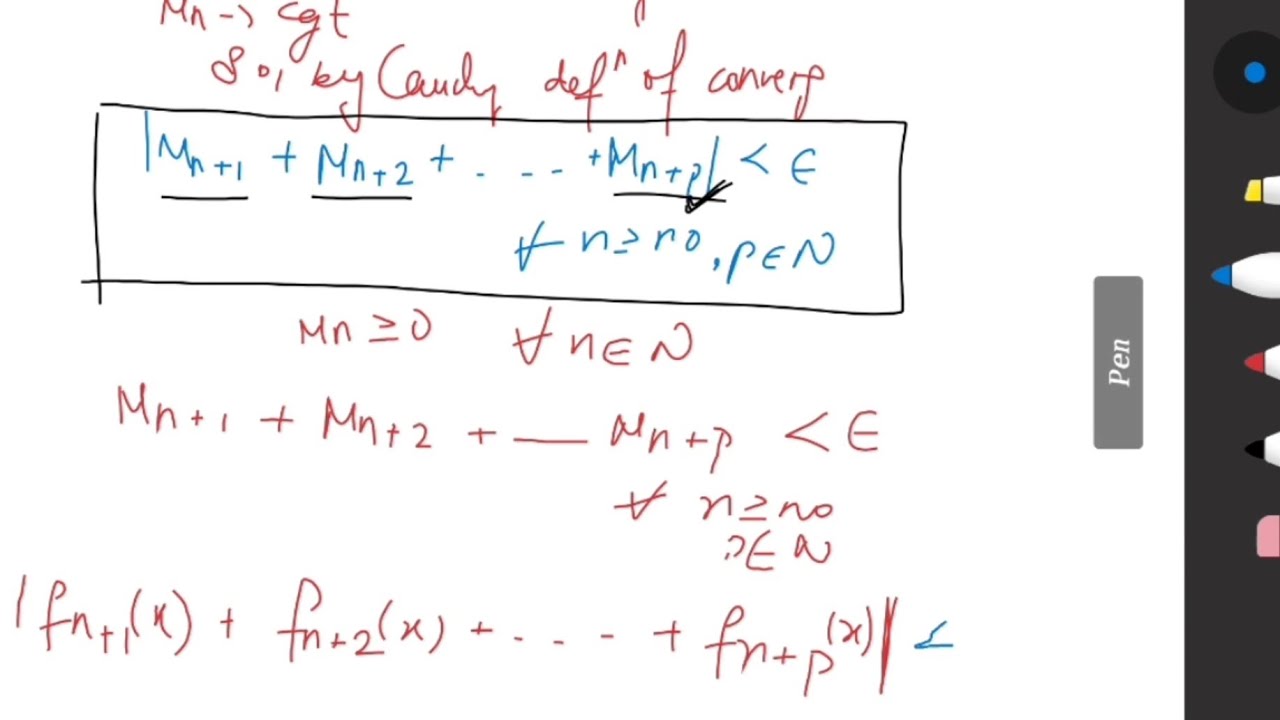 Mn → cgt
So, by Cauchy defⁿ of converg
|Mn+1 + Mn+2 + . - - - +Mn+p| < ∈
∀ n≥no, p∈N
Mn ≥0 ∀ n∈N
Mn+1 + Mn+2 + — Mn+p < ∈
∀ n≥no
p∈N
|fn+1(x) + fn+2(x) + . . - - + fn+p(x)| ≤
Pen